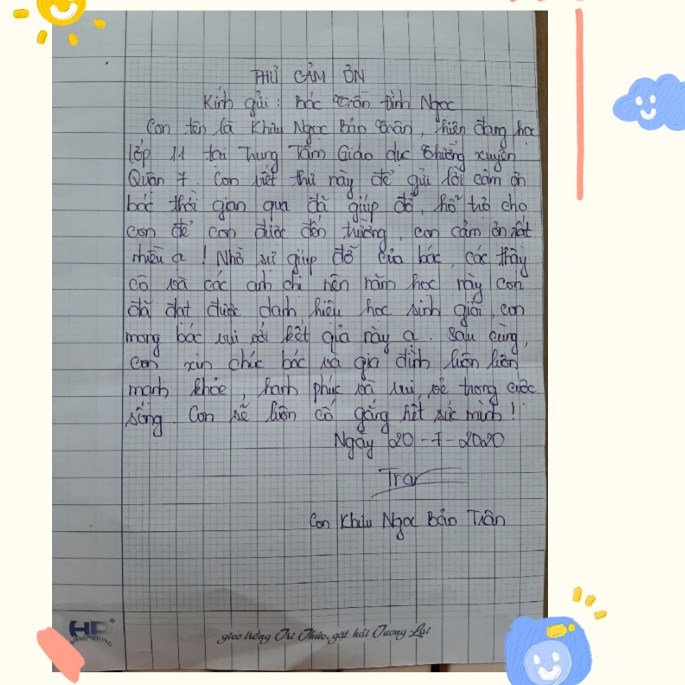 THƯ CẢM ƠN
Kính gửi : Bác Trần Đình Ngọc
Con tên là Khưu Ngọc Bảo Trân, hiện đang học
lớp 11 tại Trung Tâm Giáo dục Thường xuyên
Quận 7. Con viết thư này để gửi lời cảm ơn
bác thời gian qua đã giúp đỡ, hỗ trợ cho
con để con được đến trường, con cảm ơn rất
nhiều ạ ! Nhờ sự giúp đỡ của bác, các thầy
cô và các anh chị nên năm học này con
đã đạt được danh hiệu học sinh giỏi, con
mong bác vui với kết quả này ạ. Sau cùng,
con xin chúc bác và gia đình luôn luôn
mạnh khỏe, hạnh phúc và vui vẻ trong cuộc
sống. Con sẽ luôn cố gắng hết sức mình !
Ngày 20-7-2020
Con Khưu Ngọc Bảo Trân
HP
gieo trồng Tri Thức, gặt hái Tương Lai